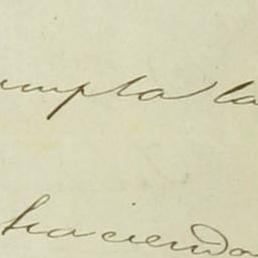 cumpla la
haciendo